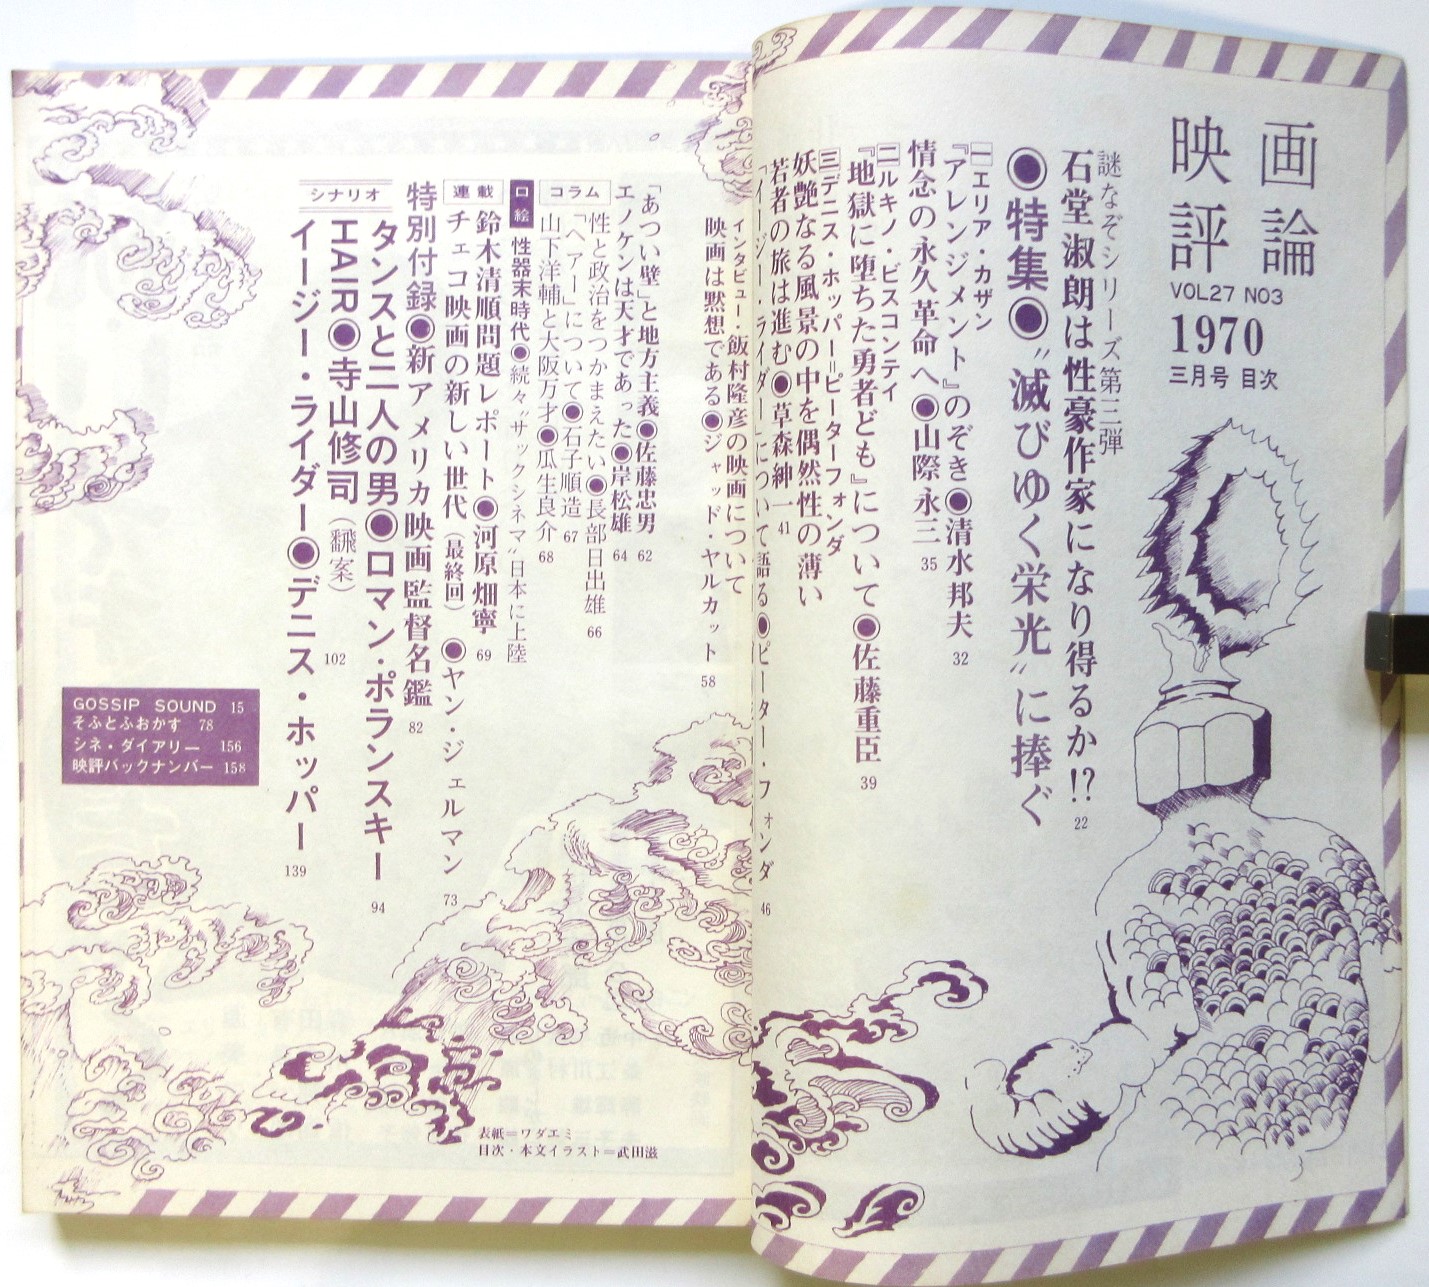 映画
評論
VOL27 NO3
1970
三月号 目次
謎なぞシリーズ第三弾
石堂淑朗は性豪作家になり得るか!? 22
◉特集◉〝滅びゆく栄光〟に捧ぐ
一エリア・カザン
『アレンジメント』のぞき◉清水邦夫 32
情念の永久革命へ◉山際永三 35
二ルキノ・ビスコンティ
『地獄に堕ちた勇者ども』について◉佐藤重臣 39
三デニス・ホッパー=ピーターフォンダ
妖艶なる風景の中を偶然性の薄い
若者の旅は進む◉草森紳一 41
「イージー・ライダー」について語る◉ピーター・フォンダ 46
インタビュー・飯村隆彦の映画について
映画は黙想である◉ジャッド・ヤルカット 58
「あつい壁」と地方主義◉佐藤忠男 62
エノケンは天才であった◉岸松雄 64
コラム
性と政治をつかまえたい◉長部日出雄 66
「ヘアー」について◉石子順造 67
山下洋輔と大阪万才◉瓜生良介 68
口絵
性器末時代◉続々〝サックシネマ〟日本に上陸
連載
鈴木清順問題レポート◉河原畑寧 69
チェコ映画の新しい世代(最終回)◉ヤン・ジェルマン 73
特別付録◉新アメリカ映画監督名鑑 82
シナリオ
タンスと二人の男◉ロマン・ポランスキー 94
HAIR◉寺山修司(飜案) 102
イージー・ライダー◉デニス・ホッパー 139
GOSSIP SOUND 15
そふとふおかす 78
シネ・ダイアリー 156
映評バックナンバー 158
表紙=ワダエミ
目次・本文イラスト=武田滋